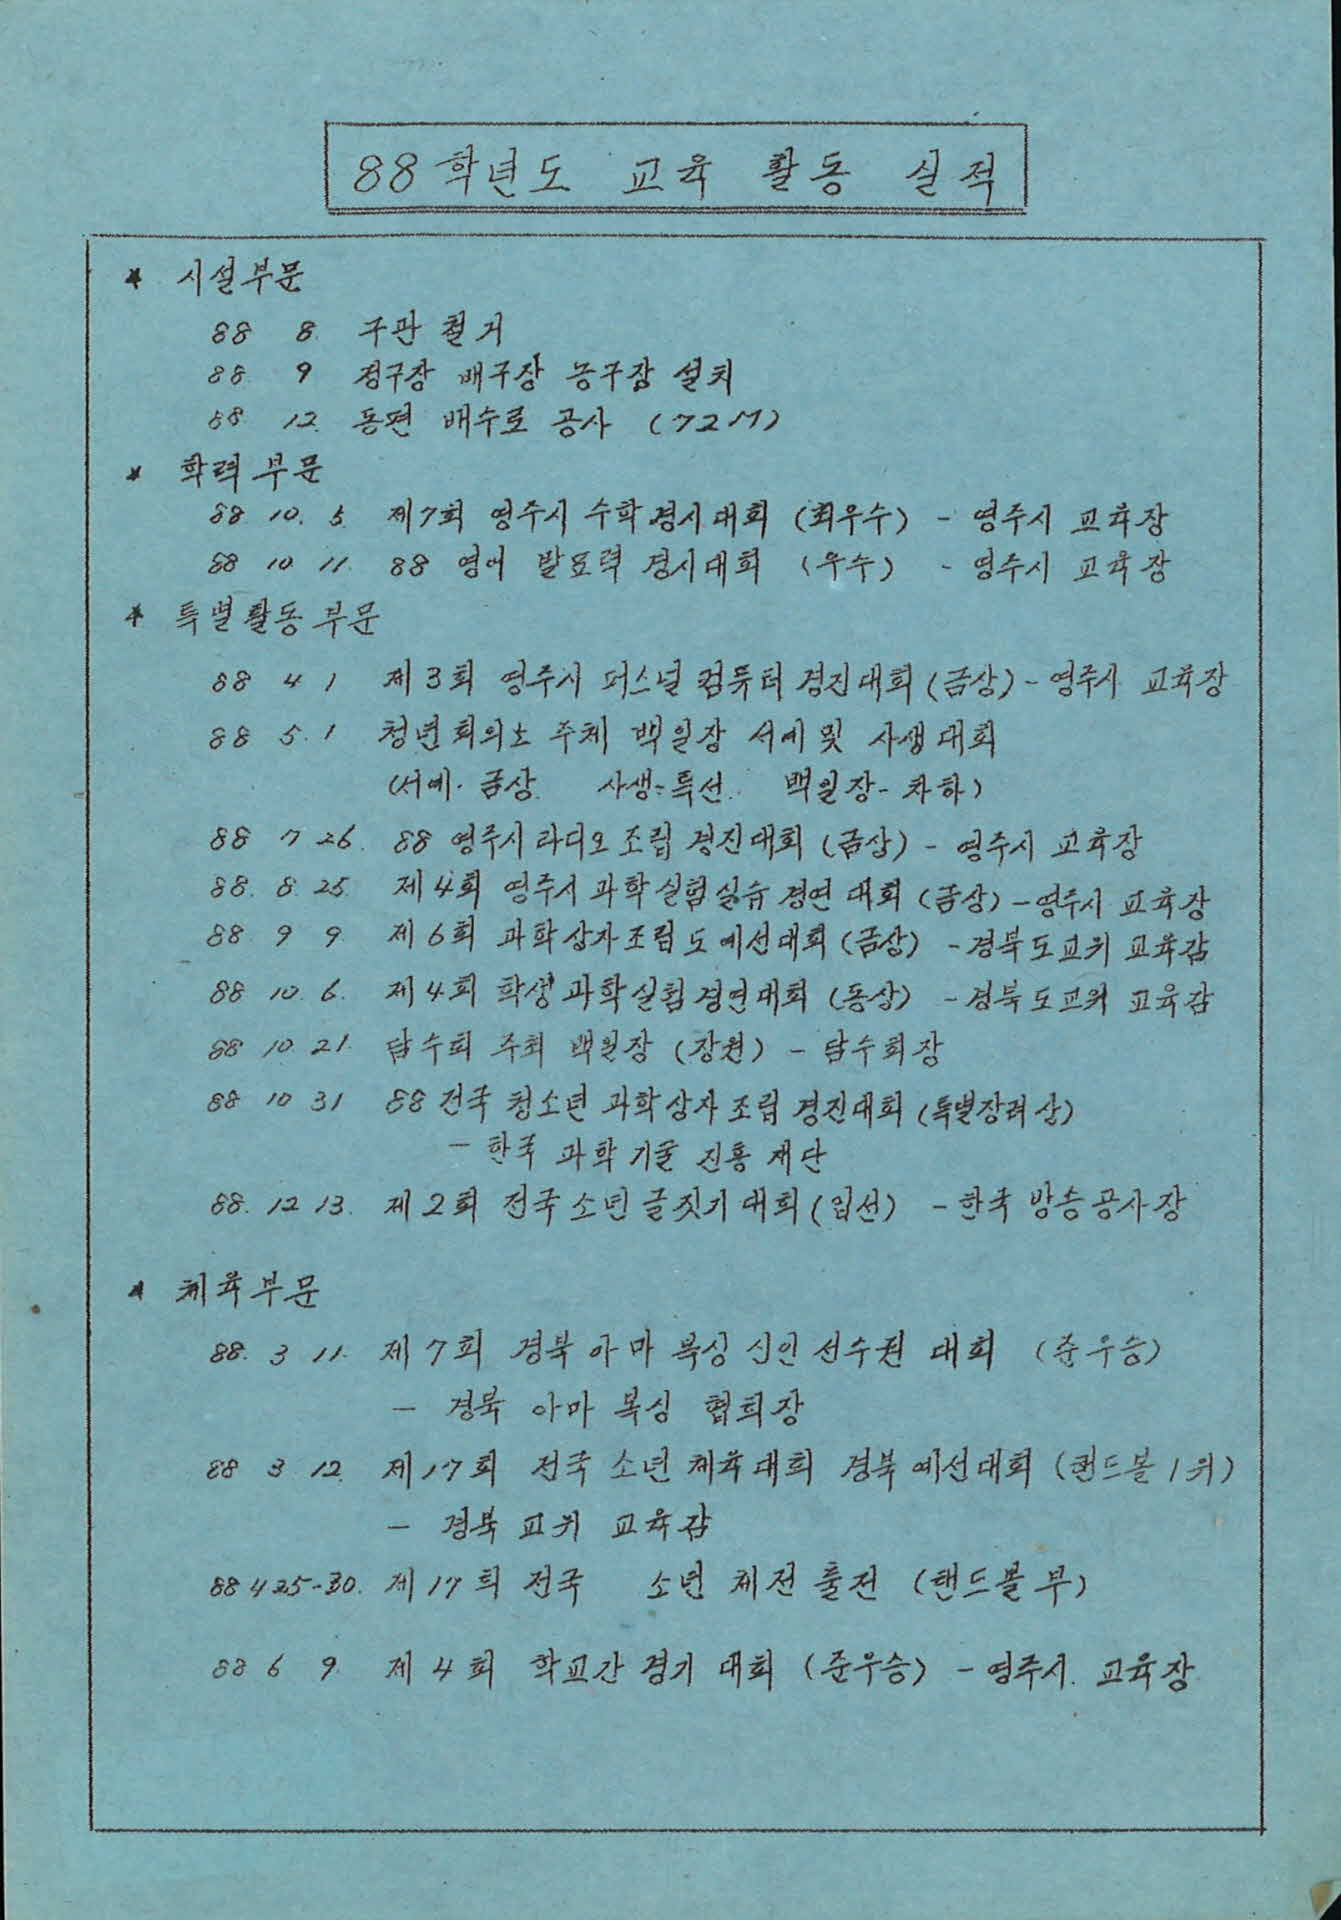 88학년도 교육 활동 실적
* 시설부문
88 8. 구관 철거
88. 9 정구장 배구장 농구장 설치
88 12. 동편 배수로 공사 (72M)
* 학력부문
88. 10. 5. 제7회 영주시 수학경시대회 (최우수) - 영주시 교육장
88 10. 11. 88 영어 발표력 경시대회 (우수) - 영주시 교육장
* 특별활동부문
88 4 1 제3회 영주시 퍼스널 컴퓨터 경진대회(금상) - 영주시 교육장
88 5. 1 청년회의소 주체 백일장 서예 및 사생대회
(서예. 금상. 사생-특선. 백일장-차하)
88 7 26. 88 영주시 라디오 조립 경진대회 (금상) - 영주시 교육장
88. 8. 25. 제4회 영주시 과학실험실습 경연대회 (금상) - 영주시 교육장
88. 9 9. 제6회 과학상자조립도예선대회(금상) - 경북도교위 교육감
88 10. 6. 제4회 학생과학실험경연대회 (동상) - 경북도교위 교육감
88 10. 21. 담수회 주최 백일장 (장원) - 담수회장
88 10 31 88 전국 청소년 과학상자 조립 경진대회 (특별장려상)
- 한국 과학기술 진흥 재단
88. 12 13. 제2회 전국소년글짓기대회(입선) - 한국방송공사장
* 체육부문
88. 3 11. 제7회 경북 아마 복싱 신인선수권 대회 (준우승)
- 경북 아마 복싱 협회장
88 3 12. 제17회 전국 소년 체육대회 경북예선대회 (핸드볼 1위)
- 경북 교위 교육감
88 4 25-30. 제17회 전국 소년 체전 출전 (핸드볼부)
88 6 9. 제4회 학교간 경기 대회 (준우승) - 영주시. 교육장